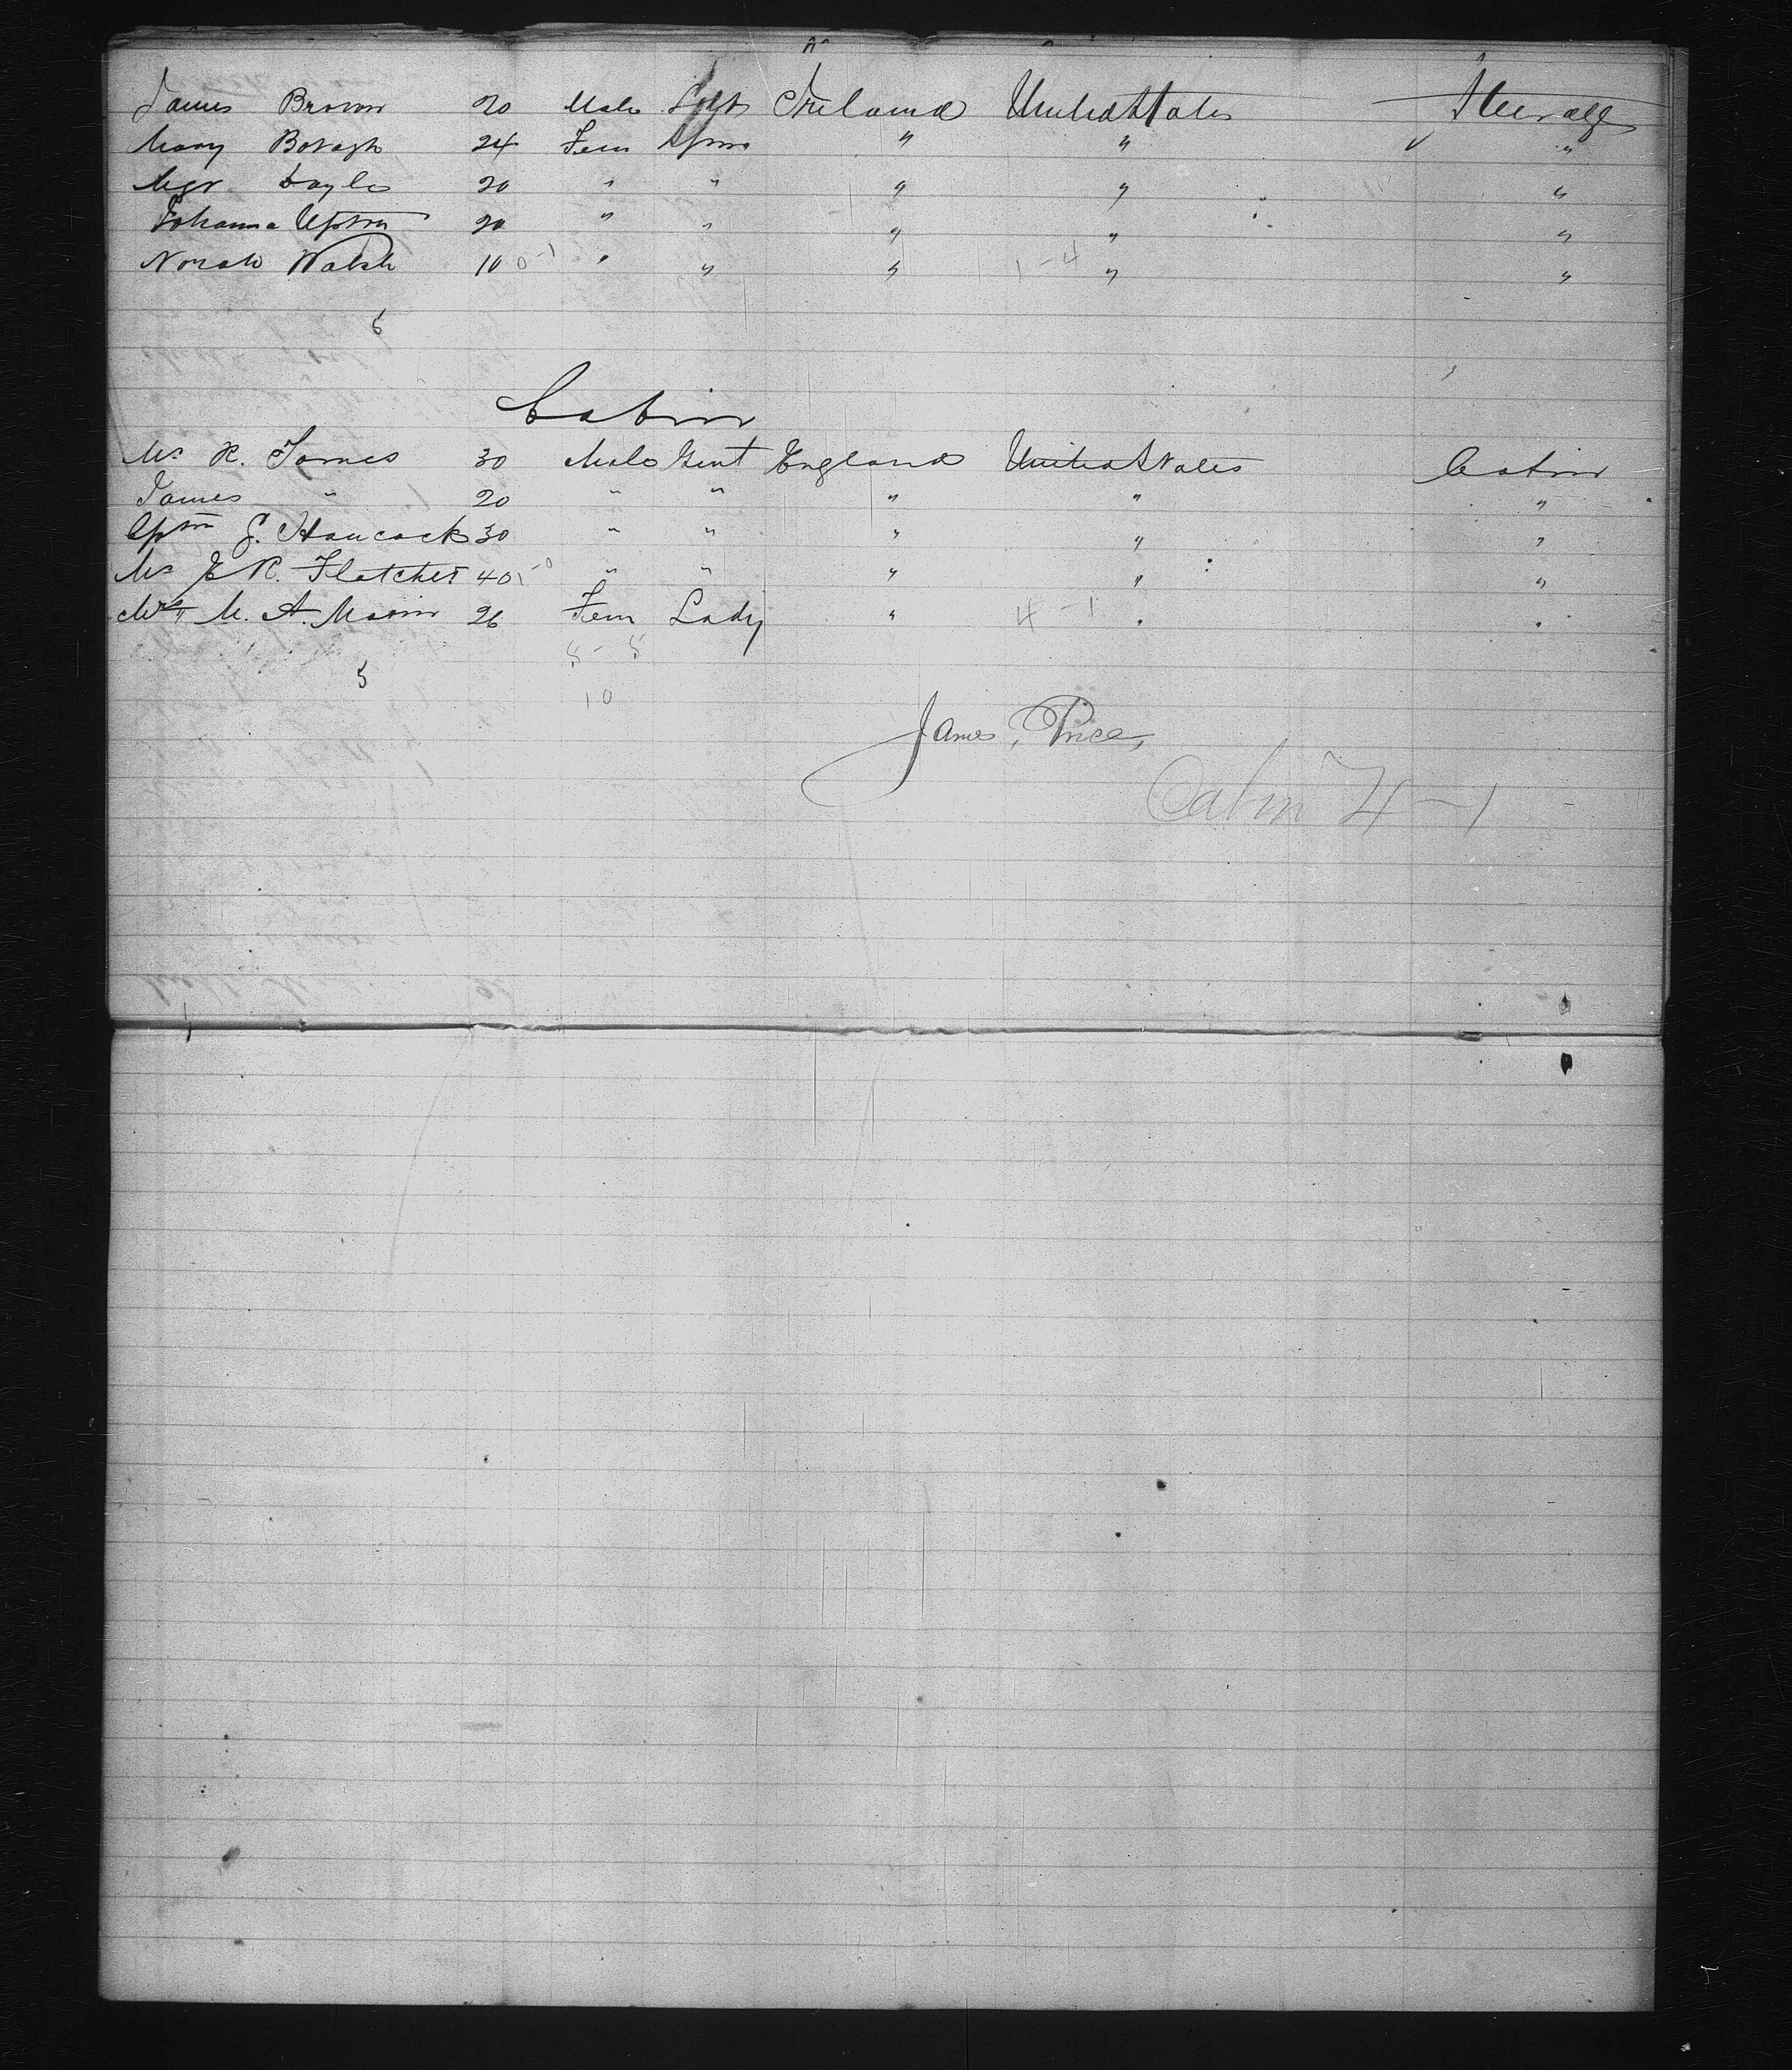 James Brown 20 Male Ireland United States Steerage
Mary 24 Fem Spins " " "
Mgr Doyle 20 " " " " "
Johanna Upton 20 " " " " "
Norah Walsh 10 0-1 " " " 1-4 " "
5
Cabin
Mr R. James 30 Male Gent England United States Cabin
James " 20 " " " " "
J. Hancock 30 " " " " "
Mr E R. Fletcher 40 " " " " "
M. A. 26 Fem Lady " 4-1 " "
5-5
5
10
James Price,
Cabin 4-1